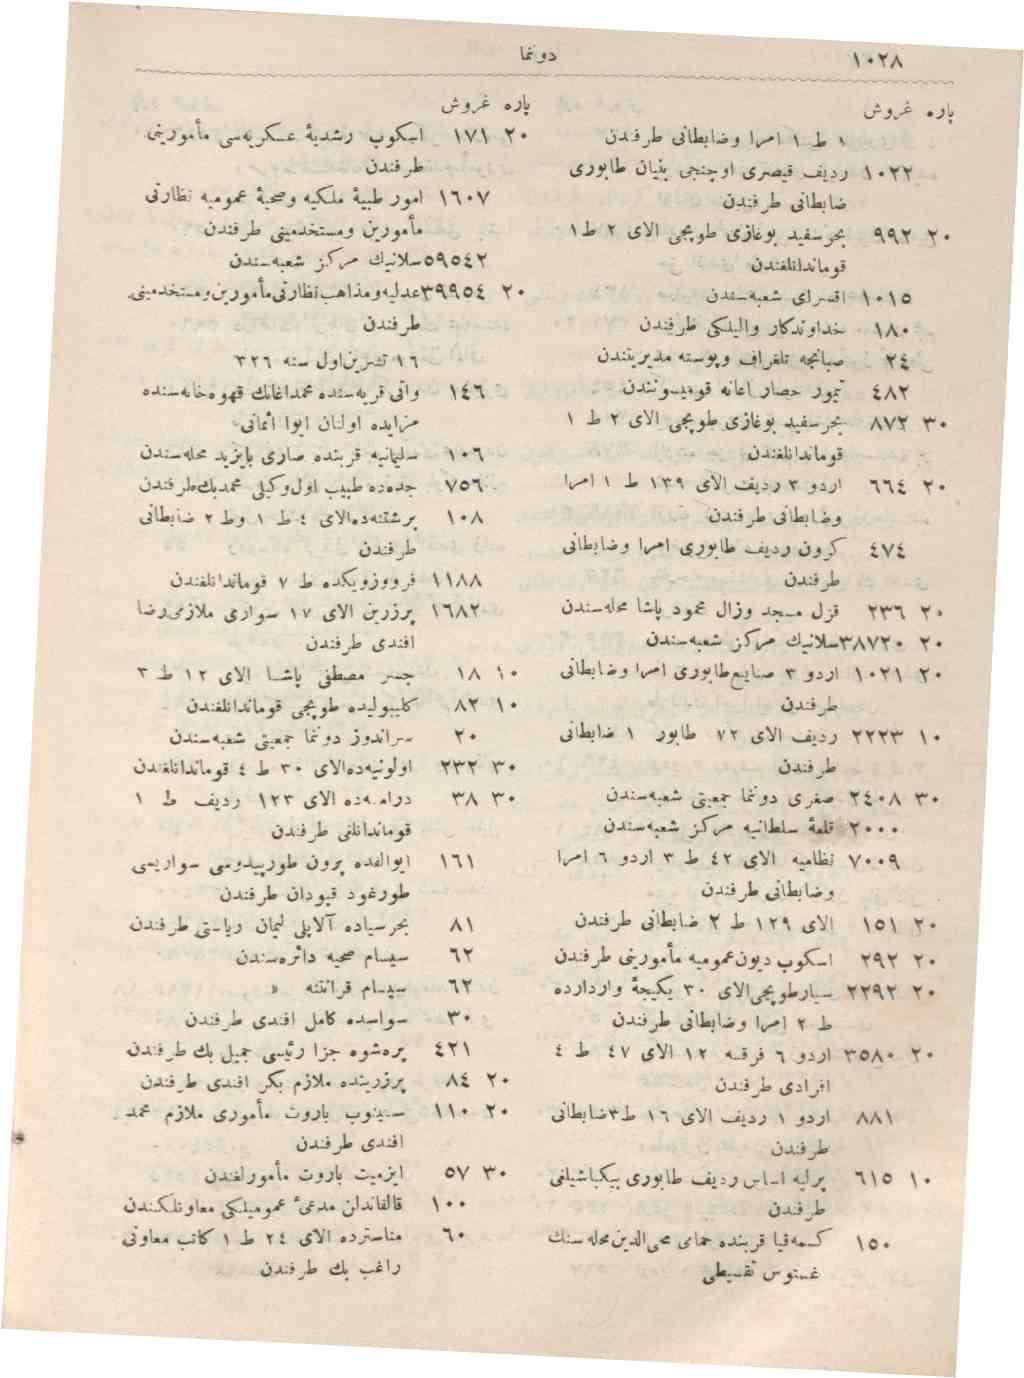 ١٠٢٨
دونما
پاره غروش
١ ط ١ امرا وضابطانی طرفندن
١٠٢٢ ردیف قیصری اوچنجی بنیان طابوری
ضابطانی طرفندن
٢٠ ٩٩٢ بحرسفید بوغازی طوپجی الای ٢ ط ١
قوماندانلغندن
١٠١٥ اقسرای شعبه‌سندن
١٨٠ خداوندکار والیلکی طرفندن
٢٤ صبانجه تلغراف وپوسته مدیریتندن
٤٨٢ تیمور حصار اعانه قومیسیونندن
٣٠ ٨٧٢ بحرسفید بوغازی طوپجی الای ٢ ط ١
قوماندانلغندن
٢٠ ٦٦٤ اردو ٣ ردیف الای ١٣٩ ط ١ امرا
وضابطانی طرفندن
٤٧٤ کرون ردیف طابوری امرا وضابطانی
طرفندن
٢٠ ٢٣٦ قزل مسجد وزال محمود پاشا محله‌سندن
٢٠ ٣٨٧٢٠ سلانیك مرکز شعبه‌سندن
٢٠ ١٠٢١ اردو ٣ صنایع طابوری امرا وضابطانی
طرفندن
١٠ ٢٢٢٣ ردیف الای ٧٢ طابور ١ ضابطانی
طرفندن
٣٠ ٢٤٠٨ صغری دونما جمعیتی شعبه‌سندن
٢٠٠٠ قلعۀ سلطانیه مرکز شعبه‌سندن
٧٠٠٩ نظامیه الای ٤٢ ط ٣ اردو ٦ امرا
وضابطانی طرفندن
٢٠ ١٥١ الای ١٢٩ ط ٢ ضابطانی طرفندن
٢٠ ٢٩٢ اسکوب دیون عمومیه مأمورینی طرفندن
٢٠ ٢٢٩٢ سیارطوپجی الای ٣٠ یکیجۀ واردارده
ط ٢ امرا وضابطانی طرفندن
٢٠ ٣٥٨٠ اردو ٦ فرقه ١٢ الای ٤٧ ط ٤
افرادی طرفندن
٨٨١ اردو ١ ردیف الای ١٦ ط ٣ ضابطانی
طرفندن
١٠ ٦١٥ پرلپه اساس ردیف طابوری بیکباشیلغی
طرفندن
١٥٠ کسمه‌قیا قربنده حمامی محی‌الدین محله‌سنك
غستوس تقسیطی
پاره غروش
٢٠ ١٧١ اسکوب رشدیۀ عسکریه‌سی مأمورینی
طرفندن
١٦٠٧ امور طبیۀ ملکیه وصحیۀ عمومیه نظارتی
مأمورین ومستخدمینی طرفندن
٥٩٥٤٢ سلانیك مرکز شعبه‌سندن
٢٠ ٣٩٩٥٤ عدلیه ومذاهب نظارتی مأمورین ومستخدمینی
طرفندن
١٦ تشرین اول سنه ٣٢٦
١٤٦ واتی قریه‌سنده محمداغانك قهوه‌خانه‌سنده
مزایده اولنان ایوا اثمانی
١٠٦ سلیمانیه قربنده صاری بایزید محله‌سندن
٧٥٦ جده‌ده طبیب اول وکیلی محمدبك طرفندن
١٠٨ پرشتنه‌ده الای ٤ ط ١ وط ٢ ضابطانی
طرفندن
١١٨٨ فرووزویکده ط ٧ قوماندانلغندن
١٦٨٢ پرزرین الای ١٧ سواری ملازمی رضا
افندی طرفندن
١٠ ١٨ جسر مصطفی پاشا الای ١٢ ط ٣
١٠ ٨٢ کلیبولیده طوپجی قوماندانلغندن
٢٠ سراندوز دونما جمعیتی شعبه‌سندن
٣٠ ٢٣٢ اولونیه‌ده الای ٣٠ ط ٤ قوماندانلغندن
٣٠ ٣٨ درامه‌ده الای ١٢٣ ردیف ط ١
قوماندانلغی طرفندن
١٦١ ایوالقده پرون طورپیدوسی سواریسی
طورغود قپودان طرفندن
٨١ بحرسیاده آلاپلی لیمان ریاستی طرفندن
٦٢ سیسام صحیه دائره‌سندن
٦٢ سیسام قرانتنه »
٣٠ سواسده کامل افندی طرفندن
٤٢١ پره‌شوه جزا رئیسی جمیل بك طرفندن
٢٠ ٨٤ پرزرینده ملازم بکر افندی طرفندن
٢٠ ١١٠ سینوب باروت مأموری ملازم محمد
افندی طرفندن
٣٠ ٥٧ ایزمیت باروت مأمورلغندن
١٠٠ قالقاندلن مدعیء عمومیلکی معاونلکندن
٦٠ مناسترده الای ٢٤ ط ١ کاتب معاونی
راغب بك طرفندن